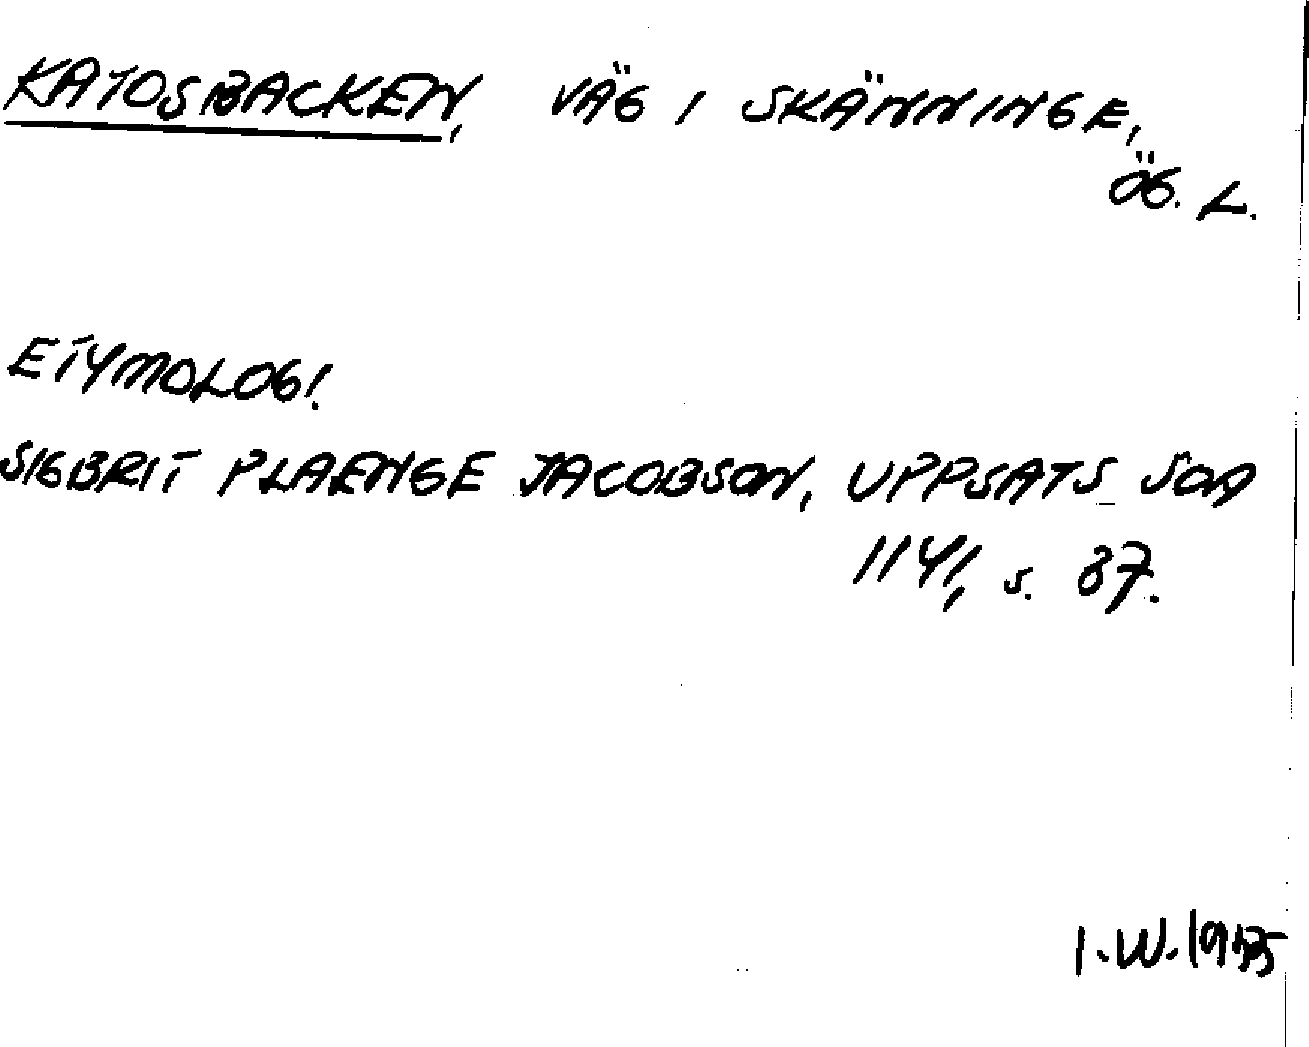 KATOSBACKEN, VÄG I SKÄNNINGE,
ÖG. L.
ETYMOLOGI.
SIGBRIT PLAENGE JACOBSON, UPPSATS SOA
1141, s. 87.
I.W.